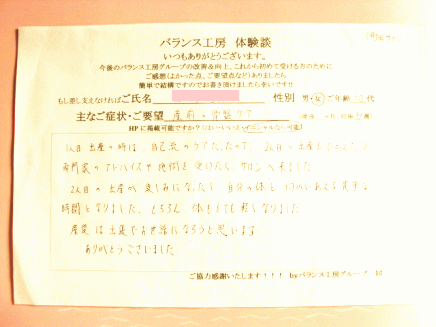 バランス工房 体験談
いつもありがとうございます。
今後のバランス工房グループの改善&向上、これから初めて受ける方のために
ご感想(よかった点、ご要望点など)ありましたら
簡単で結構ですのでお書き頂けましたら幸いです!!
もし差し支えなければご氏名 性別 男・女 ご年齢 代
主なご症状・ご要望 産前の骨盤ケア
HPに掲載可能ですか?(はい・いいえ・イニシャルなら可能)
1人目出産の時は、自己流のケアだったので、2人目の出産
専門家のアドバイスや施術を受けたく、サロンへ来ました
2人目の出産が楽しみになったし、自分の体と向いあえる貴重な
時間となりました。もちろん体もとても軽くなりました
産後は土夏でお世話になろうと思います
ありがとうございました
ご協力感謝いたします!!! byバランス工房グループ